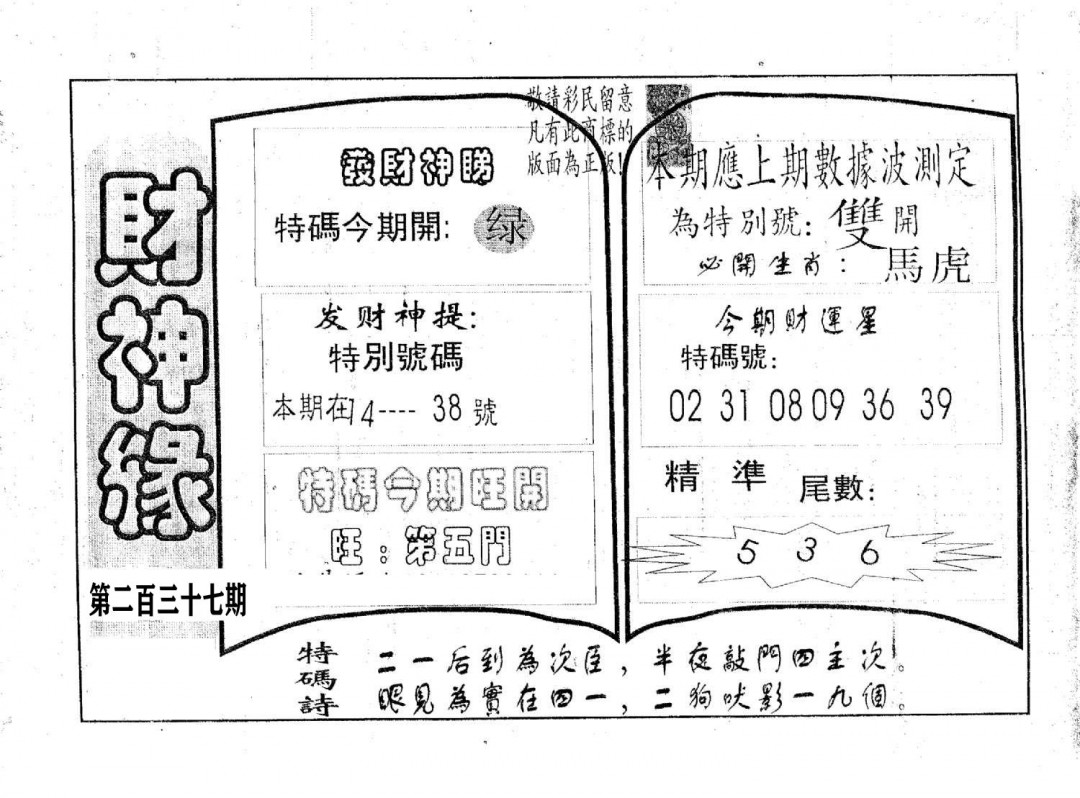 財神緣
第二百三十七期
敬請彩民留意
凡有此商標的
版面為正版!
發財神睇
特碼今期開: 绿
发财神提:
特別號碼
本期在14---- 38 號
特碼今期旺開
旺:第五門
本期應上期數據波測定
為特別號: 雙開
必開生肖: 馬虎
今期財運星
特碼號:
02 31 08 09 36 39
精準 尾數:
5 3 6
特碼詩
二一后到為次臣,半夜敲門四主次。
眼見為實在四一,二狗吠影一九個。